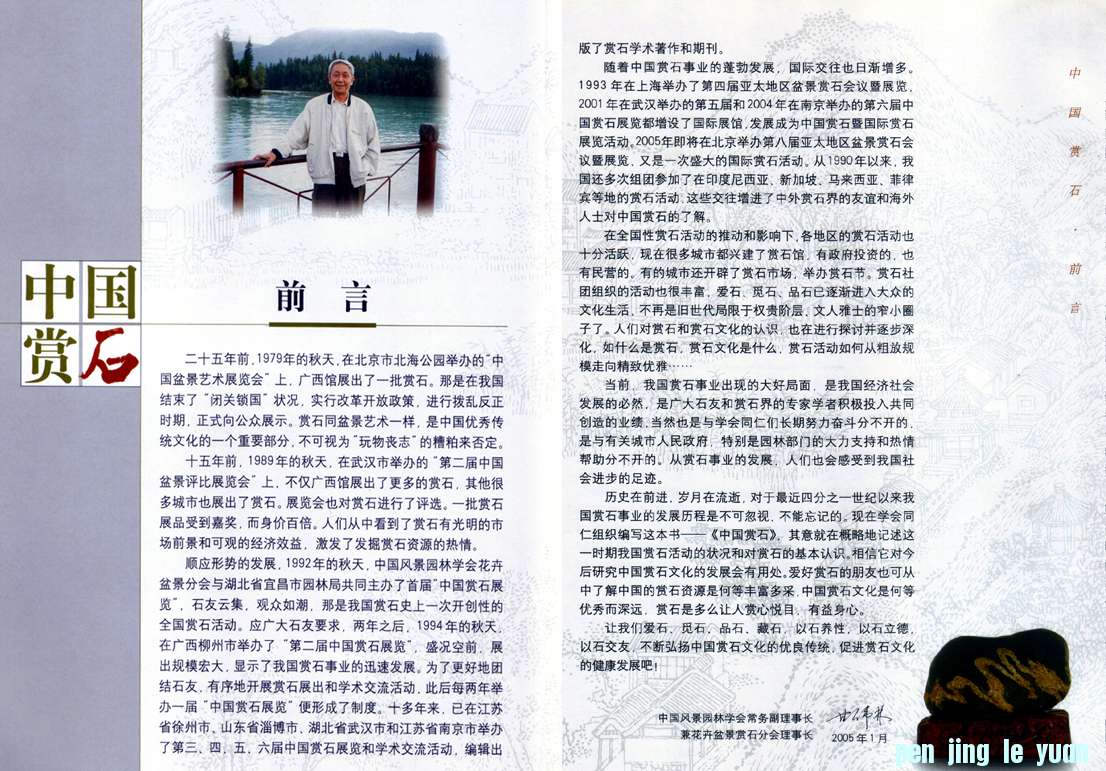 中国
赏石
前言
二十五年前，1979年的秋天，在北京市北海公园举办的“中
国盆景艺术展览会”上，广西馆展出了一批赏石。那是在我国
结束了“闭关锁国”状况，实行改革开放政策，进行拨乱反正
时期，正式向公众展示。赏石同盆景艺术一样，是中国优秀传
统文化的一个重要部分，不可视为“玩物丧志”的糟粕来否定。
十五年前，1989年的秋天，在武汉市举办的“第二届中国
盆景评比展览会”上，不仅广西馆展出了更多的赏石，其他很
多城市也展出了赏石。展览会也对赏石进行了评选。一批赏石
展品受到嘉奖，而身价百倍。人们从中看到了赏石有光明的市
场前景和可观的经济效益，激发了发掘赏石资源的热情。
顺应形势的发展，1992年的秋天，中国风景园林学会花卉
盆景分会与湖北省宜昌市园林局共同主办了首届“中国赏石展
览”，石友云集，观众如潮，那是我国赏石史上一次开创性的
全国赏石活动。应广大石友要求，两年之后，1994年的秋天，
在广西柳州市举办了“第二届中国赏石展览”，盛况空前，展
出规模宏大，显示了我国赏石事业的迅速发展。为了更好地团
结石友，有序地开展赏石展出和学术交流活动，此后每两年举
办一届“中国赏石展览”便形成了制度。十多年来，已在江苏
省徐州市、山东省淄博市、湖北省武汉市和江苏省南京市举办
了第三、四、五、六届中国赏石展览和学术交流活动，编辑出
版了赏石学术著作和期刊。
随着中国赏石事业的蓬勃发展，国际交往也日渐增多。
1993年在上海举办了第四届亚太地区盆景赏石会议暨展览，
2001年在武汉举办的第五届和2004年在南京举办的第六届中
国赏石展览都增设了国际展馆，发展成为中国赏石暨国际赏石
展览活动。2005年即将在北京举办第八届亚太地区盆景赏石会
议暨展览，又是一次盛大的国际赏石活动。从1990年以来，我
国还多次组团参加了在印度尼西亚、新加坡、马来西亚、菲律
宾等地的赏石活动，这些交往增进了中外赏石界的友谊和海外
人士对中国赏石的了解。
在全国性赏石活动的推动和影响下，各地区的赏石活动也
十分活跃，现在很多城市都兴建了赏石馆，有政府投资的，也
有民营的。有的城市还开辟了赏石市场，举办赏石节。赏石社
团组织的活动也很丰富，爱石、觅石、品石已逐渐进入大众的
文化生活，不再是旧世代局限于权贵阶层，文人雅士的窄小圈
子了。人们对赏石和赏石文化的认识，也在进行探讨并逐步深
化，如什么是赏石，赏石文化是什么，赏石活动如何从粗放规
模走向精致优雅……
当前，我国赏石事业出现的大好局面，是我国经济社会
发展的必然，是广大石友和赏石界的专家学者积极投入共同
创造的业绩，当然也是与学会同仁们长期努力奋斗分不开的，
是与有关城市人民政府，特别是园林部门的大力支持和热情
帮助分不开的。从赏石事业的发展，人们也会感受到我国社
会进步的足迹。
历史在前进，岁月在流逝，对于最近四分之一世纪以来我
国赏石事业的发展历程是不可忽视，不能忘记的。现在学会同
仁组织编写这本书——《中国赏石》，其意就在概略地记述这
一时期我国赏石活动的状况和对赏石的基本认识。相信它对今
后研究中国赏石文化的发展会有用处。爱好赏石的朋友也可从
中了解中国的赏石资源是何等丰富多采，中国赏石文化是何等
优秀而深远，赏石是多么让人赏心悦目，有益身心。
让我们爱石、觅石、品石、藏石，以石养性，以石立德，
以石交友，不断弘扬中国赏石文化的优良传统，促进赏石文化
的健康发展吧！
中国风景园林学会常务副理事长
兼花卉盆景赏石分会理事长
2005年1月
中国赏石·前言
pen jing le yuan